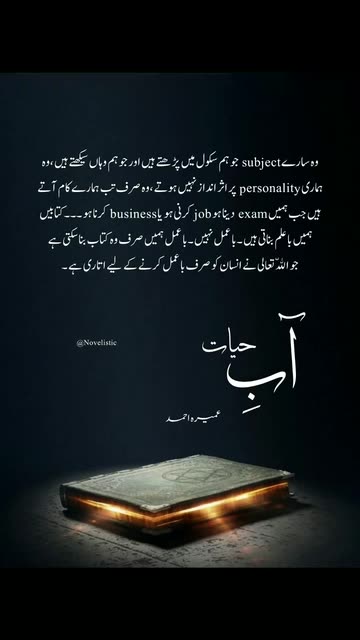 وہ سارے subject جو ہم سکول میں پڑھتے ہیں اور جو ہم وہاں سیکھتے ہیں، وہ
ہماری personality پر اثر انداز نہیں ہوتے، وہ صرف تب ہمارے کام آتے
ہیں جب ہمیں exam دینا ہو job کرنی ہو یا business کرنا ہو۔۔۔ کتابیں
ہمیں با علم بناتی ہیں۔ با عمل نہیں۔ با عمل ہمیں صرف وہ کتاب بنا سکتی ہے
جو اللہ تعالی نے انسان کو صرف با عمل کرنے کے لیے اتاری ہے۔
آبِ حیات
@Novelistic
عمیرہ احمد